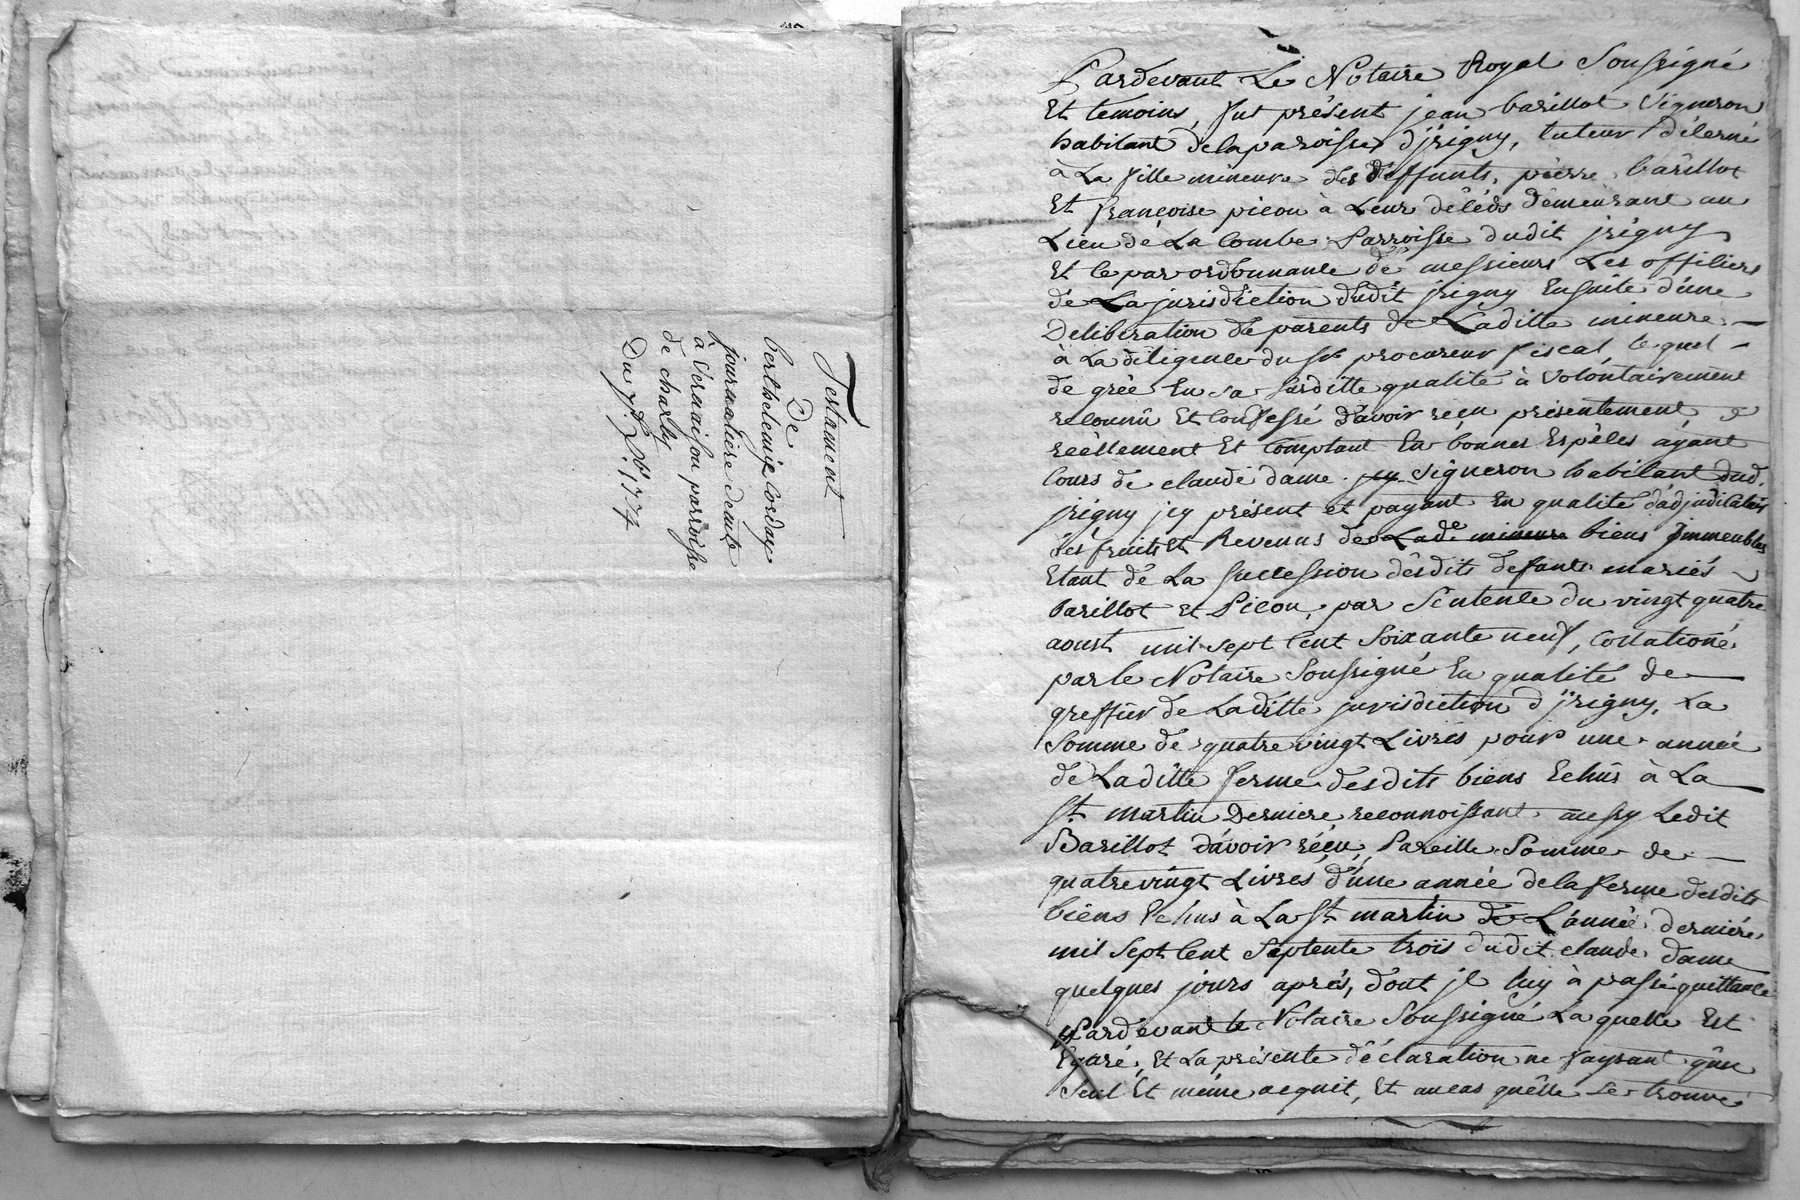 Testament
De
berthelemie Corday
journaliere demte
à Vernaison parroisse
de charly
Du 7e. Xbre. 1774
Pardevant Le Notaire Royal Soussigné
Et temoins, fut présent jean barillot Vigneron
habitant delaparoisse d'jrigny, tuteur décerné
à La fille mineure des deffunts, pierre barillot
Et françoise picou à Leur décéds demeurant au
Lieu de La Combe Parroisse dudit jrigny
Et ce par ordonnance de messieurs Les officiers
de La jurisdiction dudit jrigny Ensuite d'une
Deliberation de parents de Laditte mineure
à La diligence du Sr procureur fiscal, Lequel
de gréé En sa Sarditte qualité à volontairement
reconnû Et Confessé d'avoir réçu présentement
réèllement Et Comptant En bonnes Espèces ayant
Cours de claude dame jcy Vigneron habitant dud.
jrigny jcy présent et payant En qualité d'adjudicataire
des fruits Et Revenus de Lade mineure biens jmmeubles
Etant de La Succession desdits defants mariés
barillot et Picou, par Sentence du vingt quatre
aoust mil sept Cent Soixante neuf, Collationé
par le Notaire Soussigné En qualité de
greffier de Laditte jurisdiction d'jrigny, La
Somme de quatre vingt Livres pour une année
de Laditte ferme desdits biens Echûs à La
St. martin Derniere reconnoissant aussy Ledit
Barillot d'avoir réçu Pareille Somme de
quatrevingt Livres d'une année delaferme desdits
biens Echus à La St martin de L'année derniere
mil Sept Cent Septente trois dudit claude dame
quelques jours après, dont jl luy à passé quittance
Pardevant le Notaire Soussigné Laquelle Est
Egaré, Et La présente déclaration ne faysant qûn
Seul Et même acquit, Et aucas quêlle Se trouve